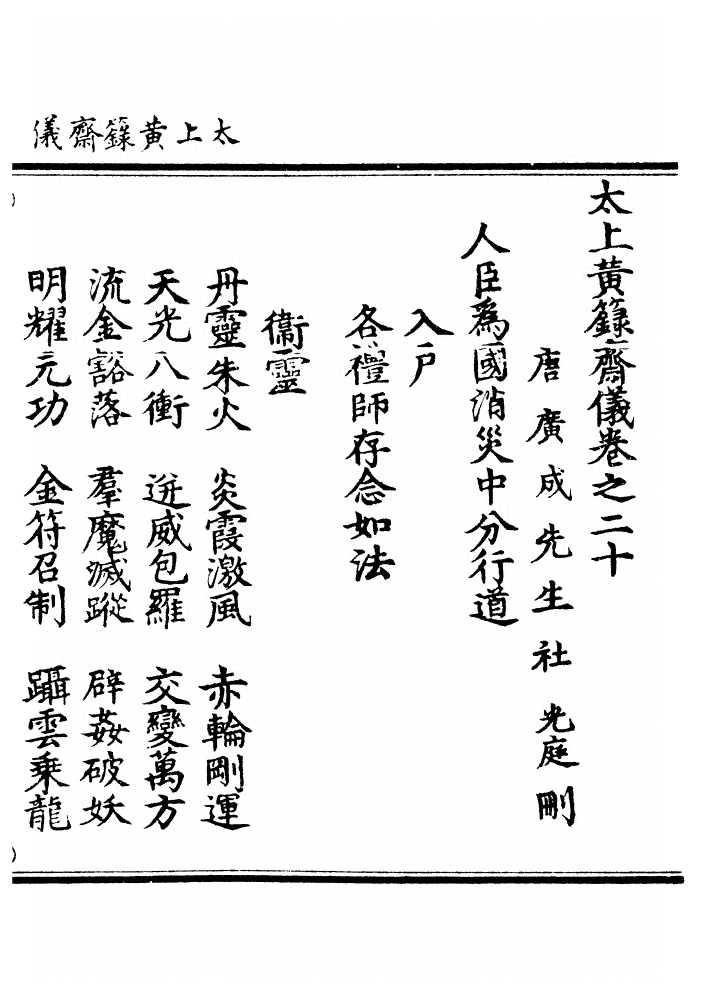 太上黃籙齋儀
太上黃籙齋儀卷之二十
唐廣成先生社光庭刪
人臣爲國消災中分行道
入戶
各禮師存念如法
衞靈
丹靈朱火 炎霞激風 赤輪剛運
天光八衝 迸威包羅 交變萬方
流金豁落 羣魔滅蹤 辟姦破妖
明耀元功 金符召制 躡雲乘龍